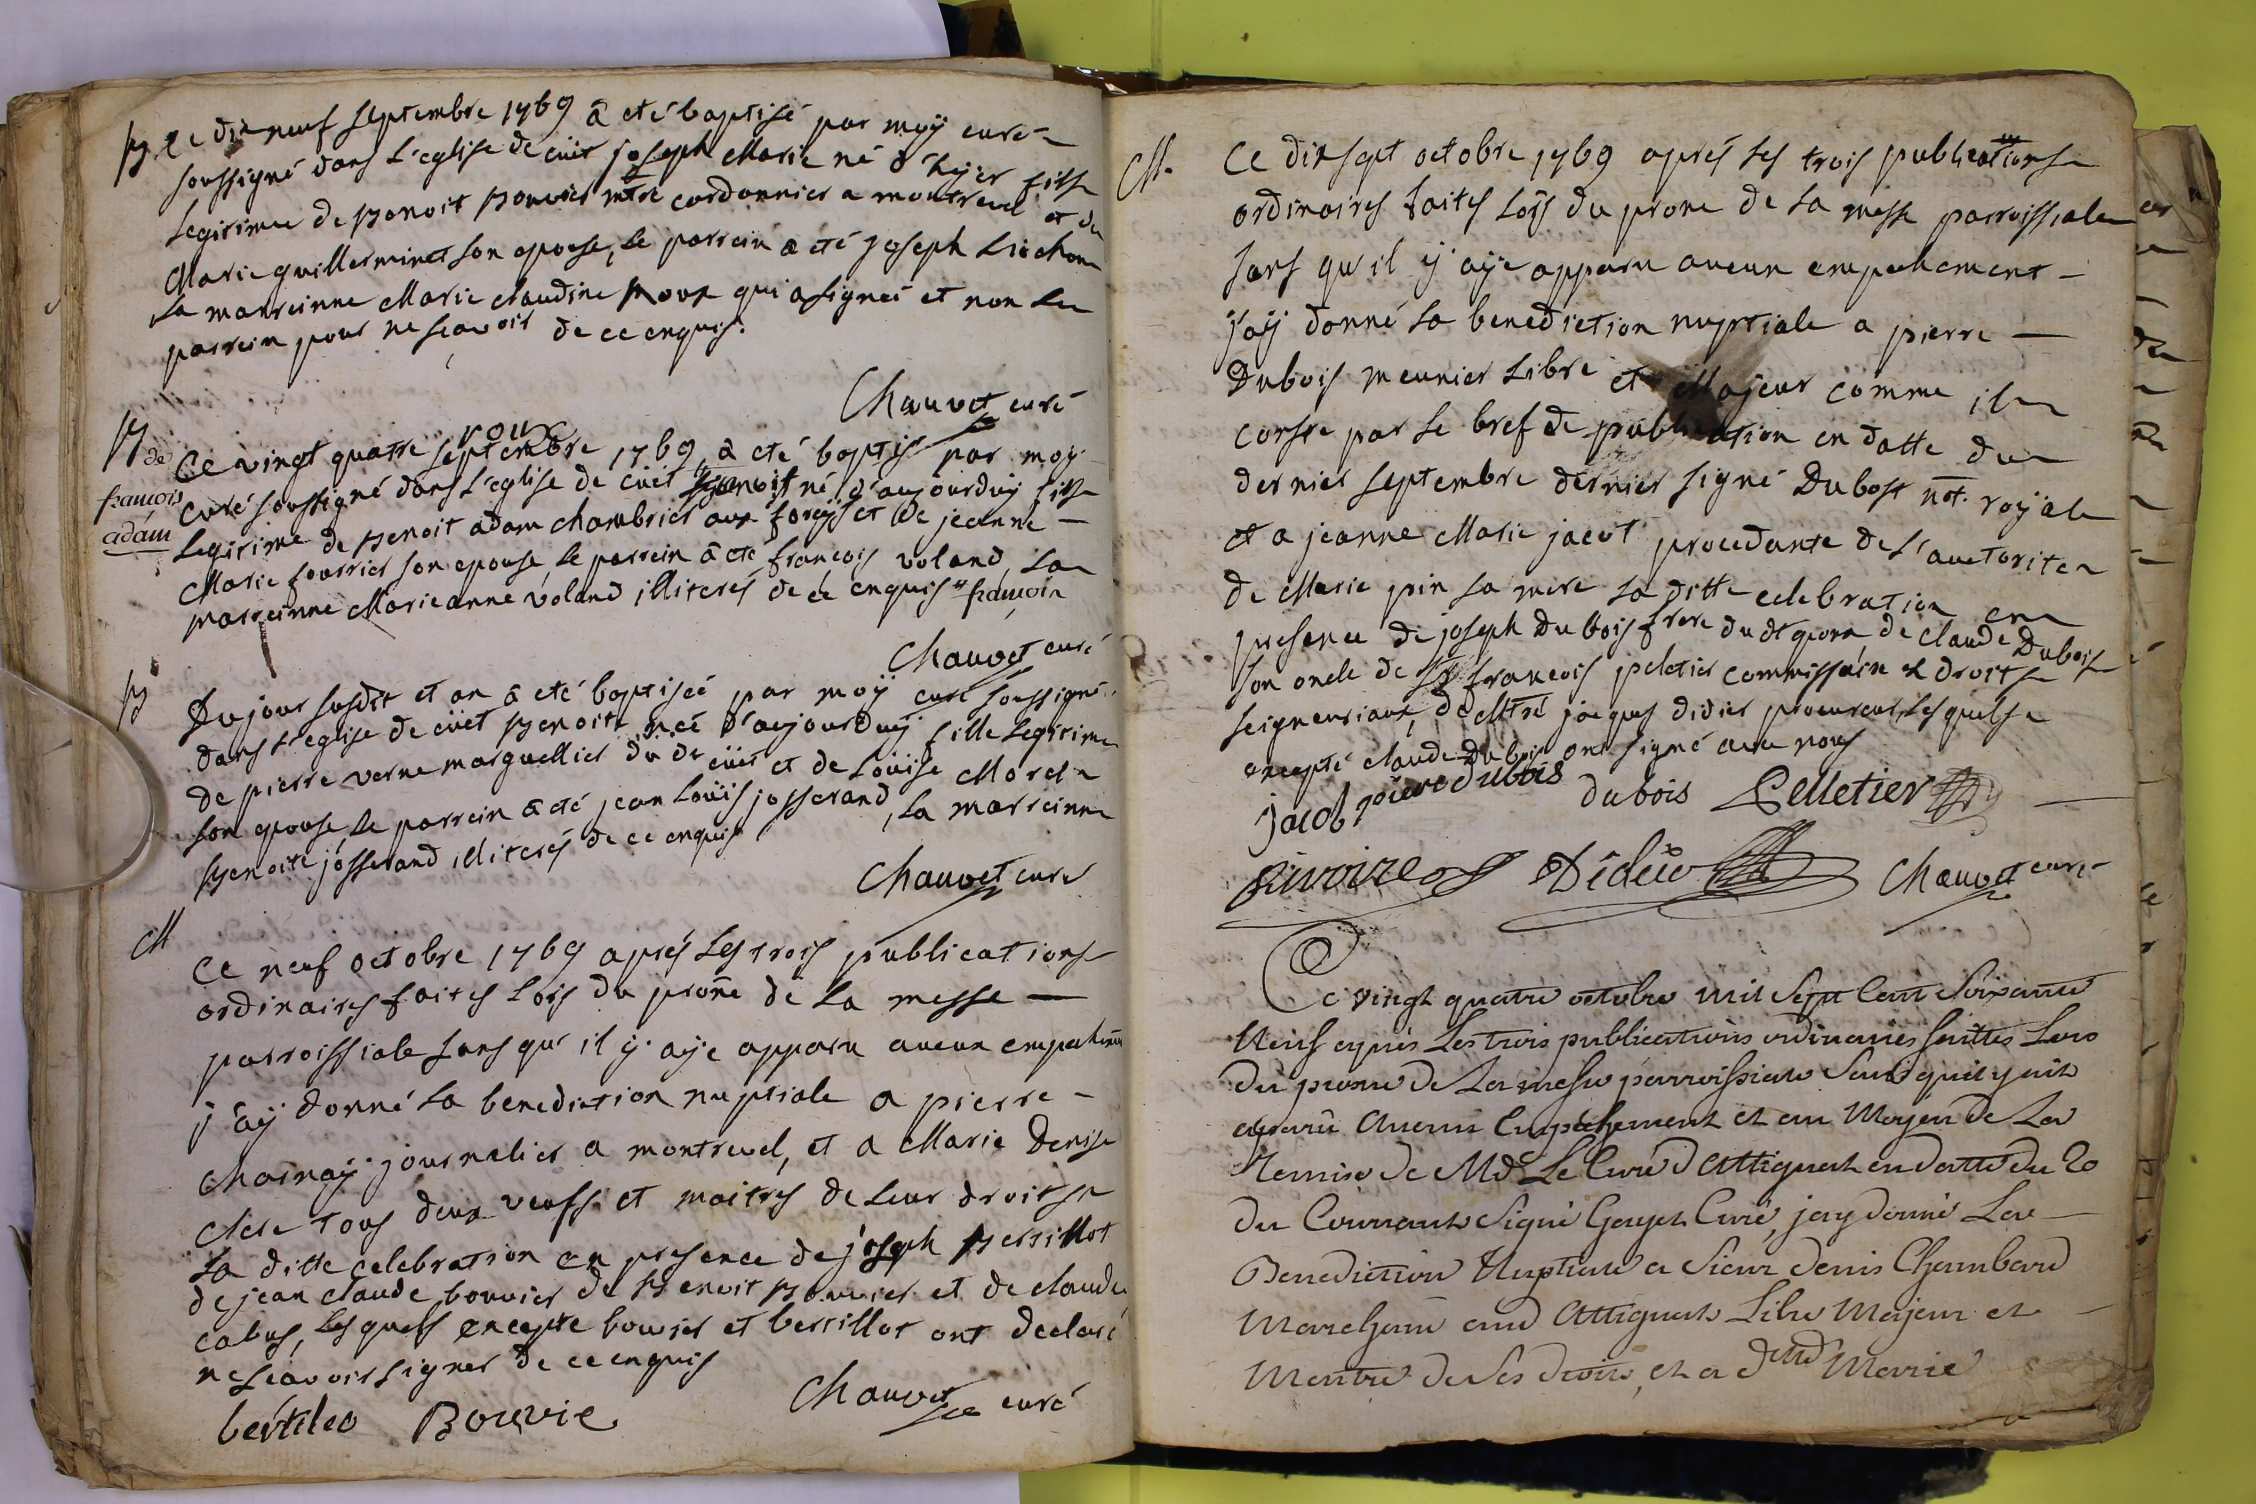 B. Ce dix neuf septembre 1769 â eté baptisé par moÿ curé
soussigné dans l'eglise de cuët joseph Marie né d'hyer fils
legitime de Benoit Bouvier mtre cordonnier a montrevel et de
Marie guillerminet son epouse, le parrein â eté joseph
la marreinne Marie claudine Roux qui a signeé et non le
parrein pour ne sçavoir de ce enquis.
roux
Chauvet curé
B
de
francois
adam
Ce vingt quatre septembre 1769 â eté baptisé par moÿ
curé soussigné dans l'eglise de cuët Benoit né d'aujourduÿ fils
legitime de Benoit adam chambrier aux et de jeanne
Marie fourrier son epouse, le parrein â eté francois voland, la
marreinne Marieanne voland illiterés de ce enquis francois
Chauvet curé
B
Du jour susdit et an â eté baptiseé par moÿ curé soussigné
dans l'eglise de cuët Benoite neé d'aujourduÿ fille legitime
de pierre verne marguellier du dt cuët et de Loüise Morel
son epouse, le parrein â eté jean Loüis josserand, la marreinne
Benoite josserand illiterés de ce enquis
Chauvet curé
M
Ce neuf octobre 1769 aprés les trois publications
ordinaires faites lors du prône de la messe
parroissiale sans qu'il ÿ aÿe apparu aucun empechemt
j'aÿ donné la benediction nuptiale a pierre
Charnaÿ journalier a montrevel, et a Marie Denise
clere tous deux veufs et maitres de leur droits
la ditte celebration en presence de joseph Bertillot
de jean claude bouvier de Benoit Bouvier et de claude
catus, lesquels excepte bouvier et bertillot ont declaré
ne sçavoir signer de ce enquis
bertileo Bouvie Chauvet curé
M.
Ce dixsept octobre 1769 aprés les trois publications
ordinaires faites lors du prone de la messe parroissiale
sans qu'il ÿ aÿe apparu aucun empechement
j'aÿ donné la benediction nuptiale a pierre
Dubois meunier libre et Majeur comme il
conste par le bref de publication en datte du
dernier septembre dernier signé Dubost not. roÿal
et a jeanne Marie jacot procedante de l'auctorité
de Marie pin sa mere la ditte celebration en
presence de joseph Dubois frere du dt epoux, de claude Dubois
son oncle de sr francois peletier commissaire et droits
seigneuriaux, de Mtre jacques didier procureur, lesquels
excepté claude Dubois ont signé avec nous
jacot pierre dubois dubois Pelletier
rivoire Didier Chauvet curé
Ce vingt quatre octobre mil sept cent soixante
Neuf apres les trois publications ordinaires faittes lors
du prone de la messe parroissiale sans quil y ait
aparu aucun empechement et au Moyen de la
Remise de Mr Le Curé d'Attignat en datte du 20
du Courrant signé Gayet Curé, jay donné la
Benediction Nuptiale a sieur denis Chambard
Marchand aud Attignat Libre Majeur et
Maitre de ses droits, et a dlle Marie